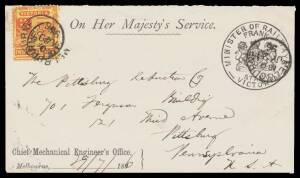 On Her Majesty's Service.
MINISTER OF RAILWAYS
FRANK
STAMP
VICTORIA
The Pittsburg Reduction Co
701 Ferguson Building
121 Third Avenue
Pittsburg
Pennsylvania
U.S.A
Chief Mechanical Engineer's Office,
Melbourne, 29/7/1897